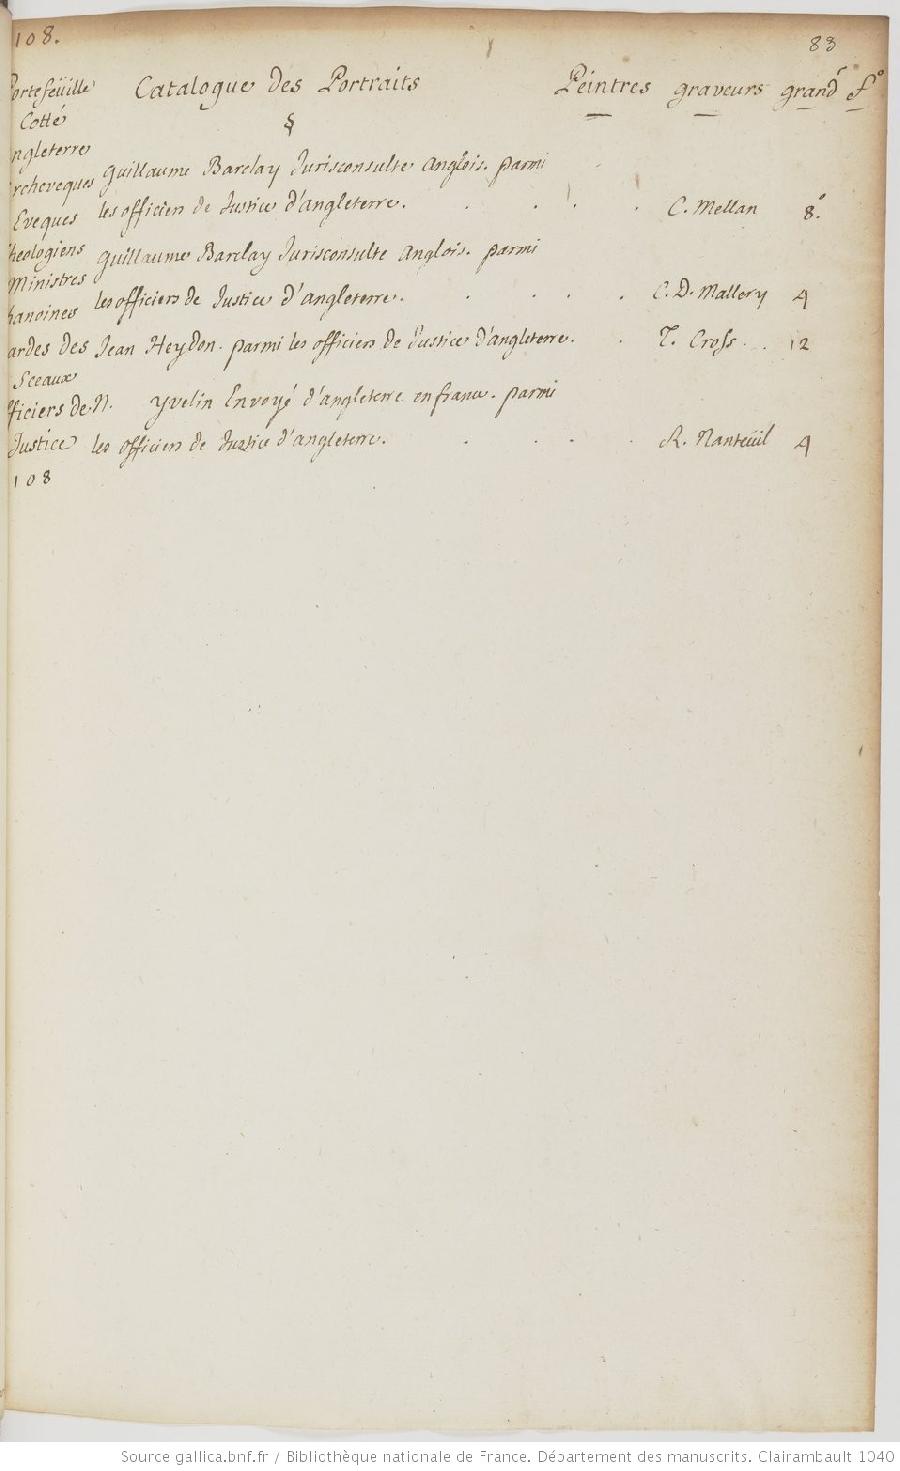 108.
83
Portefeüille Catalogue des Portraits Peintres graveurs grand f°
Cotté §
Angleterre
Archeveques Guillaume Barclay Jurisconsulte anglois. parmi
Eveques les officiers de Justice d'angleterre. C. Mellan 8°.
Theologiens Guillaume Barclay Jurisconsulte anglois. parmi
Ministres
Chanoines les officiers de Justice d'angleterre. C. D. Mallery 4
Gardes des Jean Heydon. parmi les officiers de Justice d'angleterre. T. Cross. 12
Sceaux
Officiers de N. Yvelin Envoyé d'angleterre en france. parmi
Justice les officiers de Justice d'angleterre. R. Nanteüil 4
108
Source gallica.bnf.fr / Bibliothèque nationale de France. Département des manuscrits. Clairambault 1040